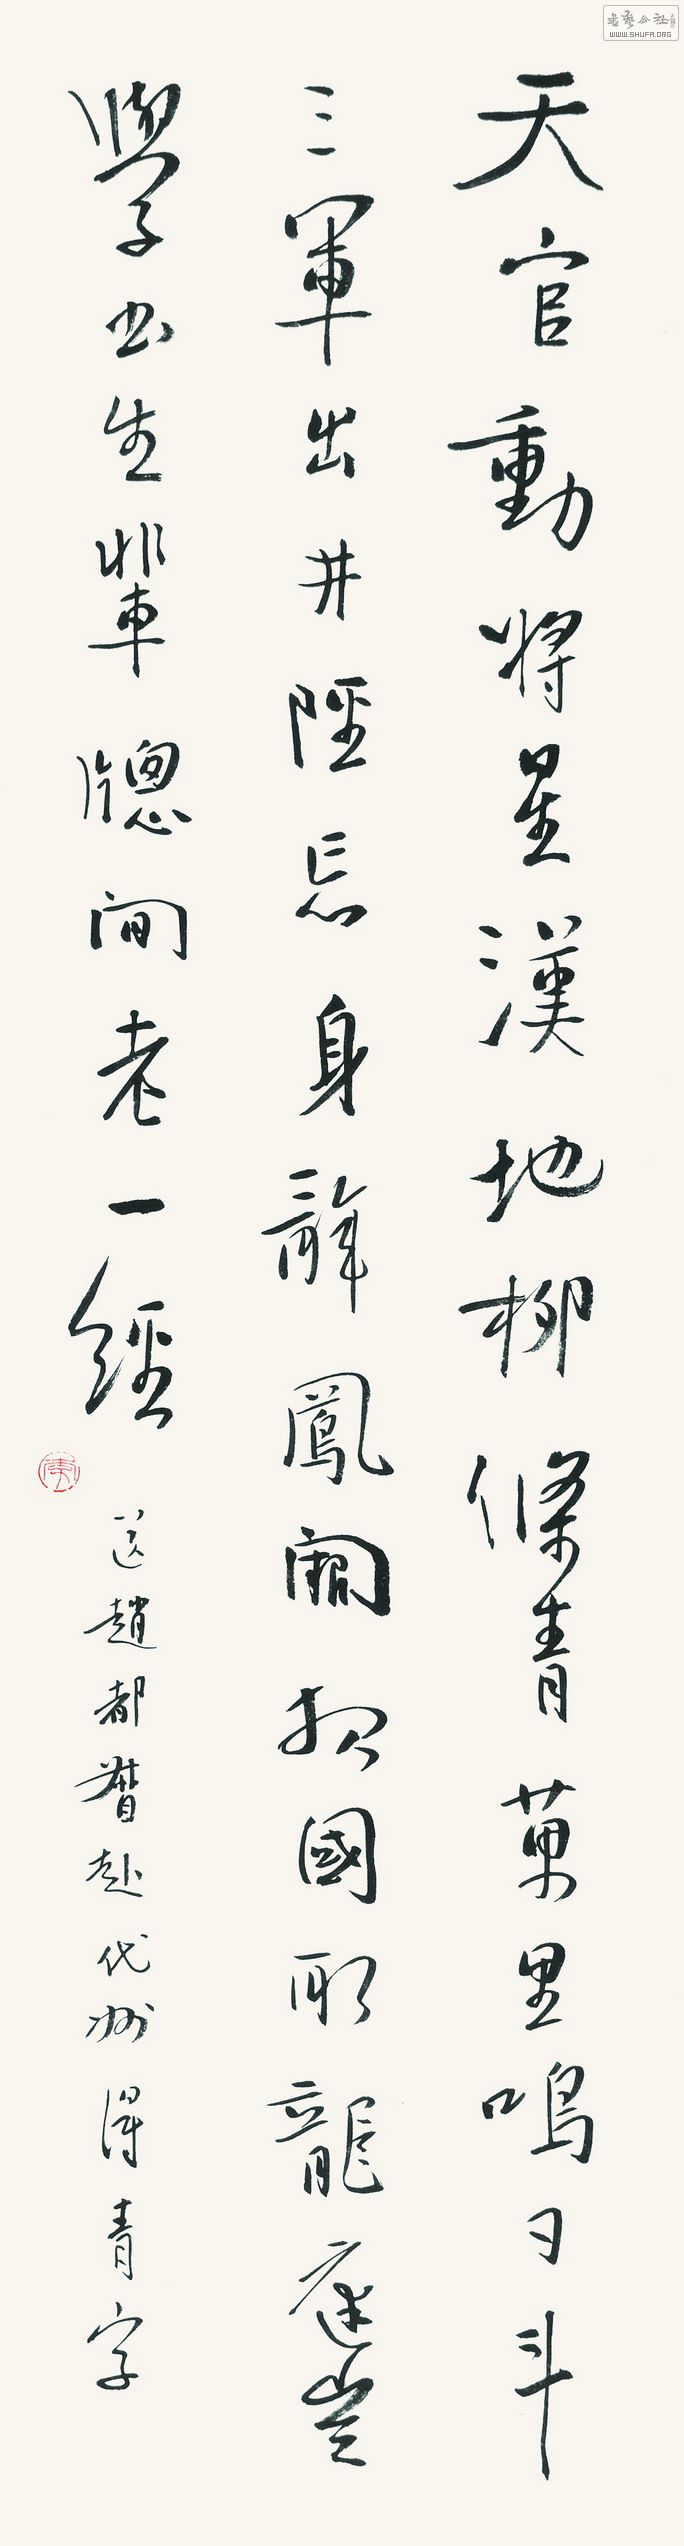 天官動將星漢地柳條青萬里鳴刁斗
三軍出井陘忘身辭鳳闕報國取龍庭豈
學書生輩牕間老一經
送趙都督赴代州得青字
書藝公社
WWW.SHUFA.ORG